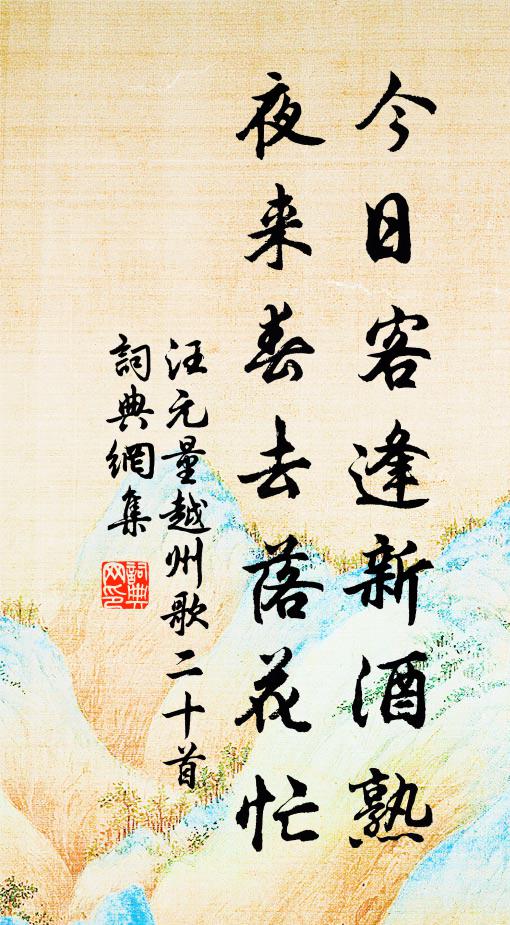 今日客逢新酒熟
夜来春去落花忙
汪元量越州歌二十首
詞典網集
詞典网印